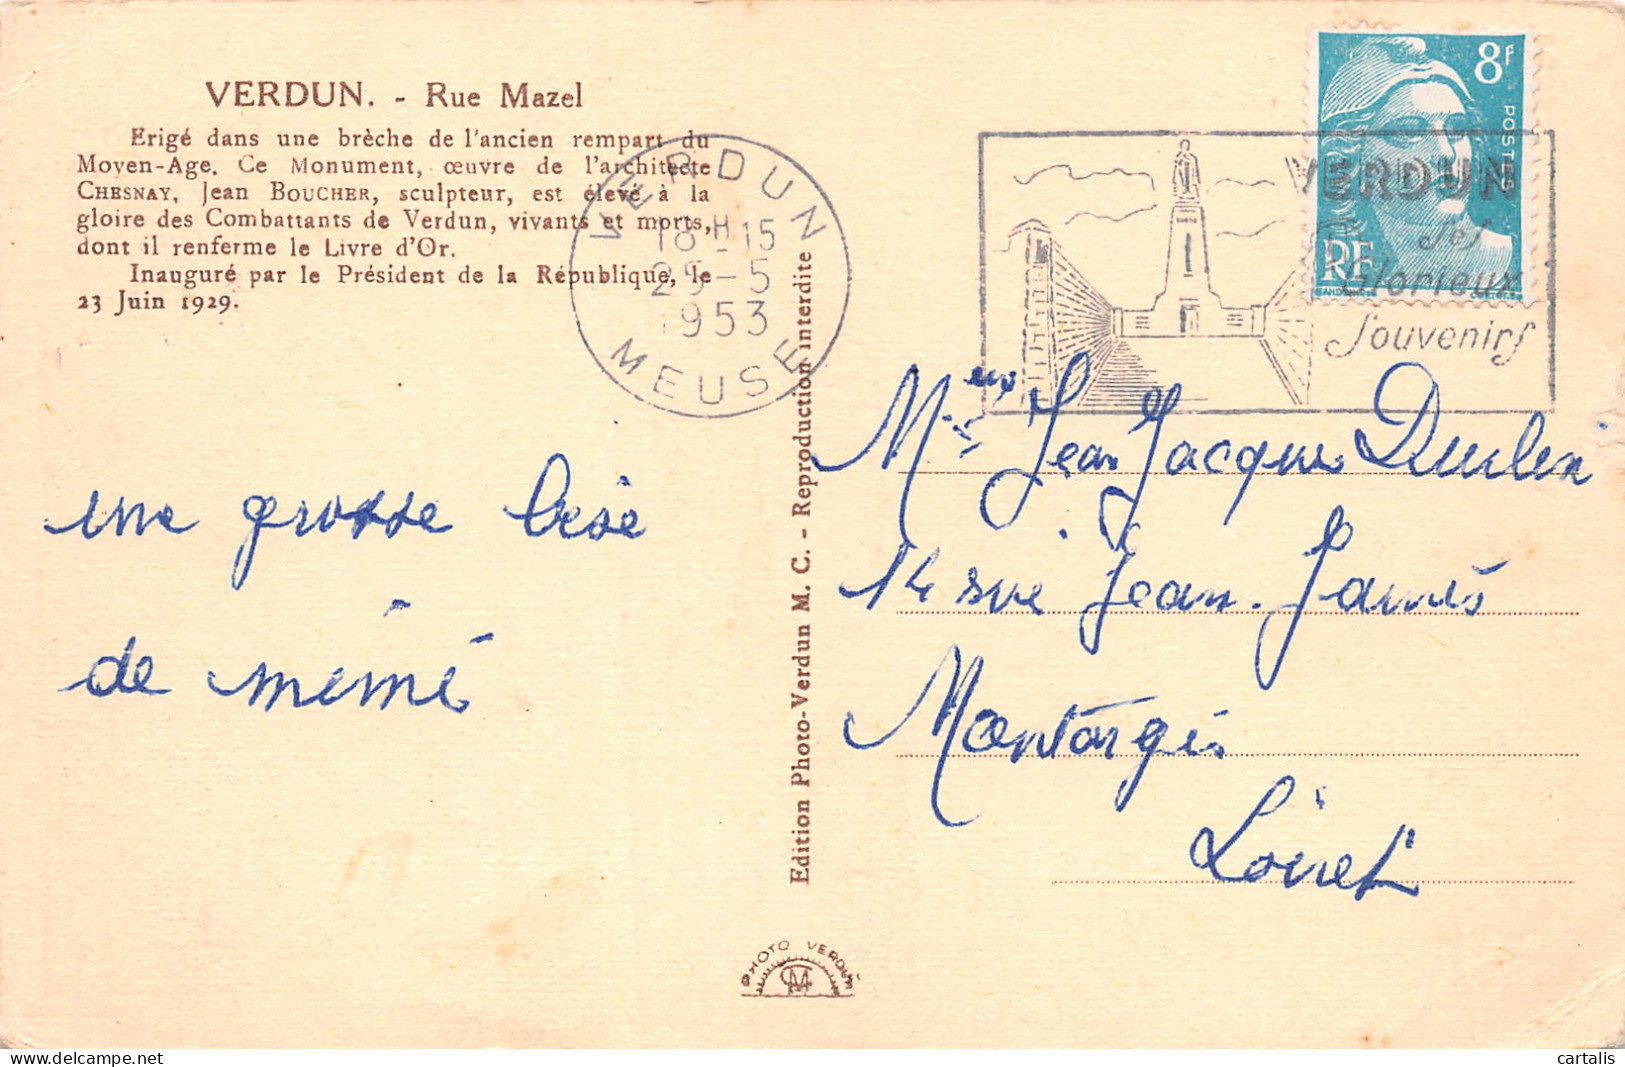 VERDUN. - Rue Mazel
Erigé dans une brèche de l'ancien rempart du
Moyen-Age. Ce Monument, œuvre de l'architecte
CHESNAY, Jean BOUCHER, sculpteur, est élevé à la
gloire des Combattants de Verdun, vivants et morts,
dont il renferme le Livre d'Or.
Inauguré par le Président de la République, le
23 Juin 1929.
VERDUN
18 H 15
25-5
1953
MEUSE
8F
POSTES
RF
VERDUN
Ses
Glorieux
Souvenirs
une grosse bise
de mémé
Edition Photo-Verdun M. C. - Reproduction interdite
Jean Jacques
14 rue Jean
Montargis
Loiret
PHOTO VERDUN
cartalis